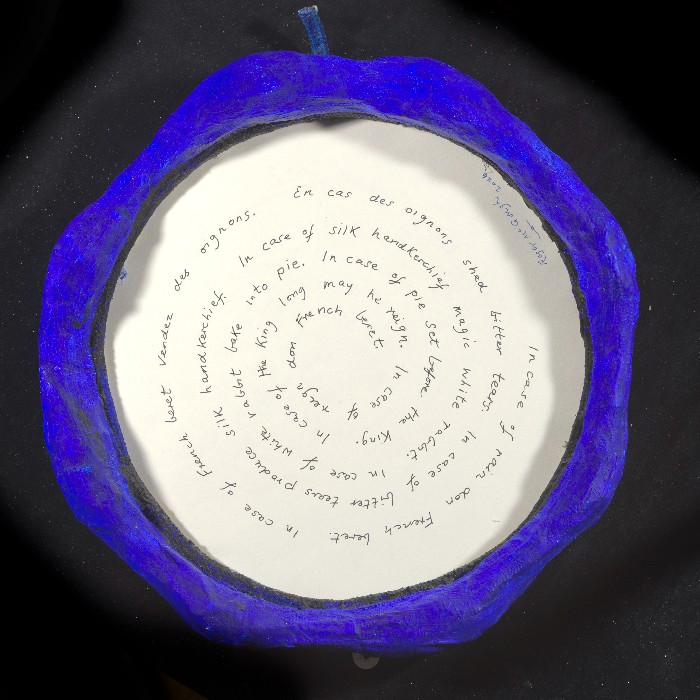 In case of rain don French beret.
In case of French beret vendez des oignons.
En cas des oignons shed bitter tears.
In case of bitter tears produce silk handkerchief.
In case of silk handkerchief magic white rabbit.
In case of white rabbit bake into pie.
In case of pie set before the King.
In case of the King long may he reign.
In case of reign don French beret.
Roger McGough